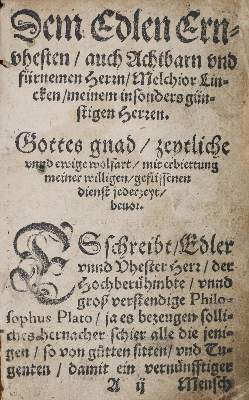 Dem Edlen Ern-
vhesten / auch Achtbarn vnd
fürnemen Herrn / Melchior Lin-
cken / meinem insonders gün-
stigen Herren.
Gottes gnad / zeytliche
vnnd ewige wolfart / mit erbiettung
meiner willigen / geflissenen
dienst jederzeyt /
beuor.
ES schreibt / Edler
vnnd Vhester Herr / der
Hochberühmbte / vnnd
groß verstendige Philo-
sophus Plato / ja es bezeugen solli-
ches hernacher schier alle die jeni-
gen / so von gütten sitten / vnd Tu-
genten / damit ein vernünfftiger
A ij Mensch